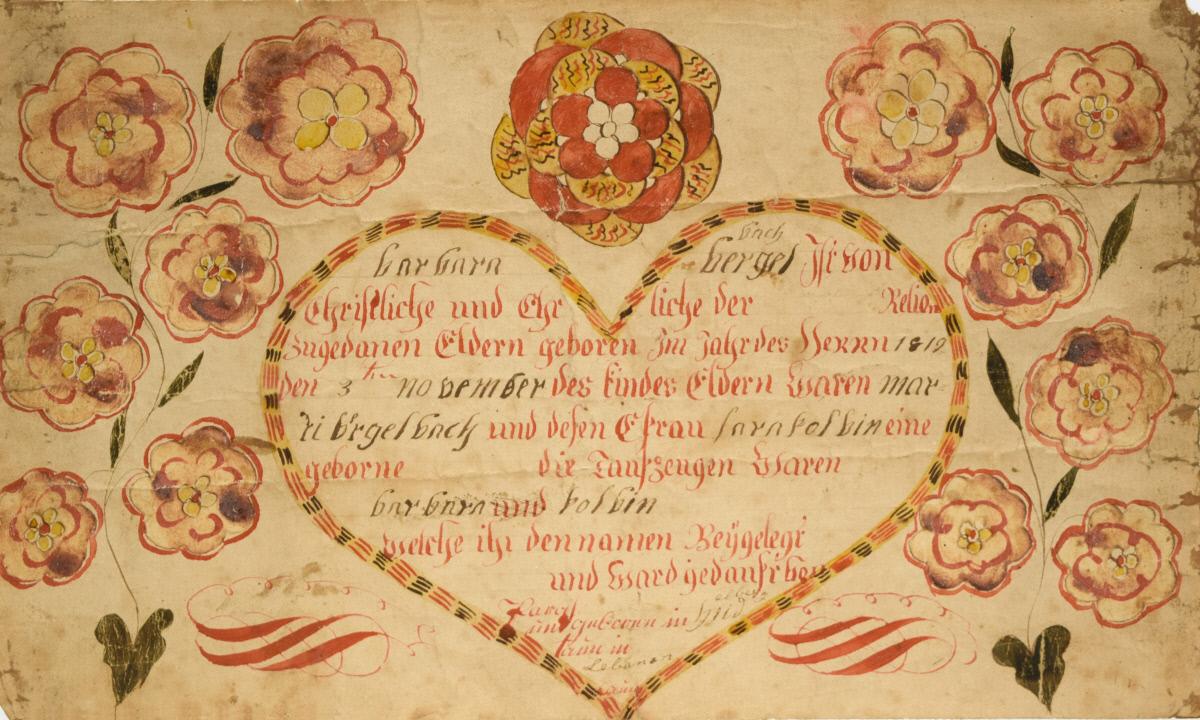 bach
barbara bergel Ist von
Christliche und Ehr liche der Relion
Zugedanen Eldern geboren Im Jahr des Herrn 1819
den 3ten november des kindes Eldern Waren mar
ti bergelbach und desen Efrau sara kolbin eine
geborne die Taufzeugen Waren
barbara und kolbin
welche ihr den namen Beÿgelegt
und Ward gedauft
und geboren in
taun in
Lebanon